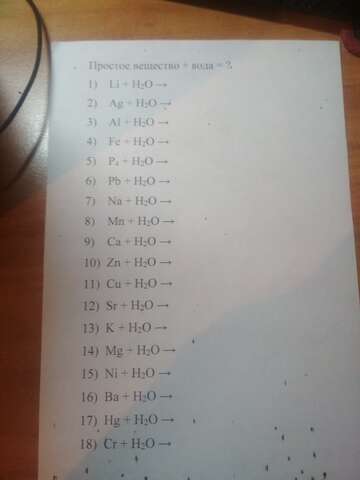 Простое вещество + вода = ?
1) Li + H₂O →
2) Ag + H₂O →
3) Al + H₂O →
4) Fe + H₂O →
5) P₄ + H₂O →
6) Pb + H₂O →
7) Na + H₂O →
8) Mn + H₂O →
9) Ca + H₂O →
10) Zn + H₂O →
11) Cu + H₂O →
12) Sr + H₂O →
13) K + H₂O →
14) Mg + H₂O →
15) Ni + H₂O →
16) Ba + H₂O →
17) Hg + H₂O →
18) Cr + H₂O →